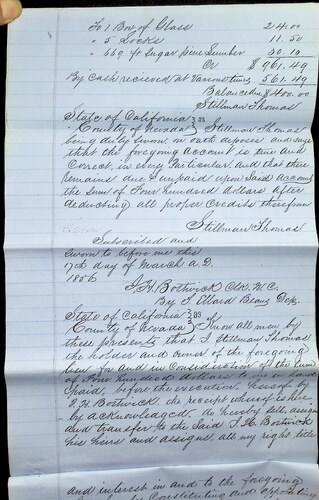 To 1 Box of Glass 24.00
" 5 Locks 11.50
" 669 ft Sugar pine Lumber 30.10
Cr $961.49
By Cash recieved at Various times 561.49
Balance due $400.00
Stillman Thomas
State of California } SS
County of Nevada } Stillman Thomas
being duly sworn on oath deposes and says
that the foregoing account is true and
Correct in every Particular and that there
remains due & unpaid upon said account
the sum of Four hundred dollars after
deducting all proper Credits therefrom
Stillman Thomas
Subscribed and
sworn to before me this
17th day of March A.D.
1856
J. H. Bostwick Clk. N.C.
By I. Ward Dep.
State of California } SS
County of Nevada } Know all men by
these presents that I Stillman Thomas
the holder and owner of the foregoing
lien for and in Consideration of the sum
of Four hundred dollars to me in hand
paid, before the execution hereof by
J. H. Bostwick, the receipt whereof is here
by acknowledged, do hereby sell, assign
and transfer to the said J. H. Bostwick
his heirs and assigns, all my right title
and interest in and to the foregoing
Constituting and appointing